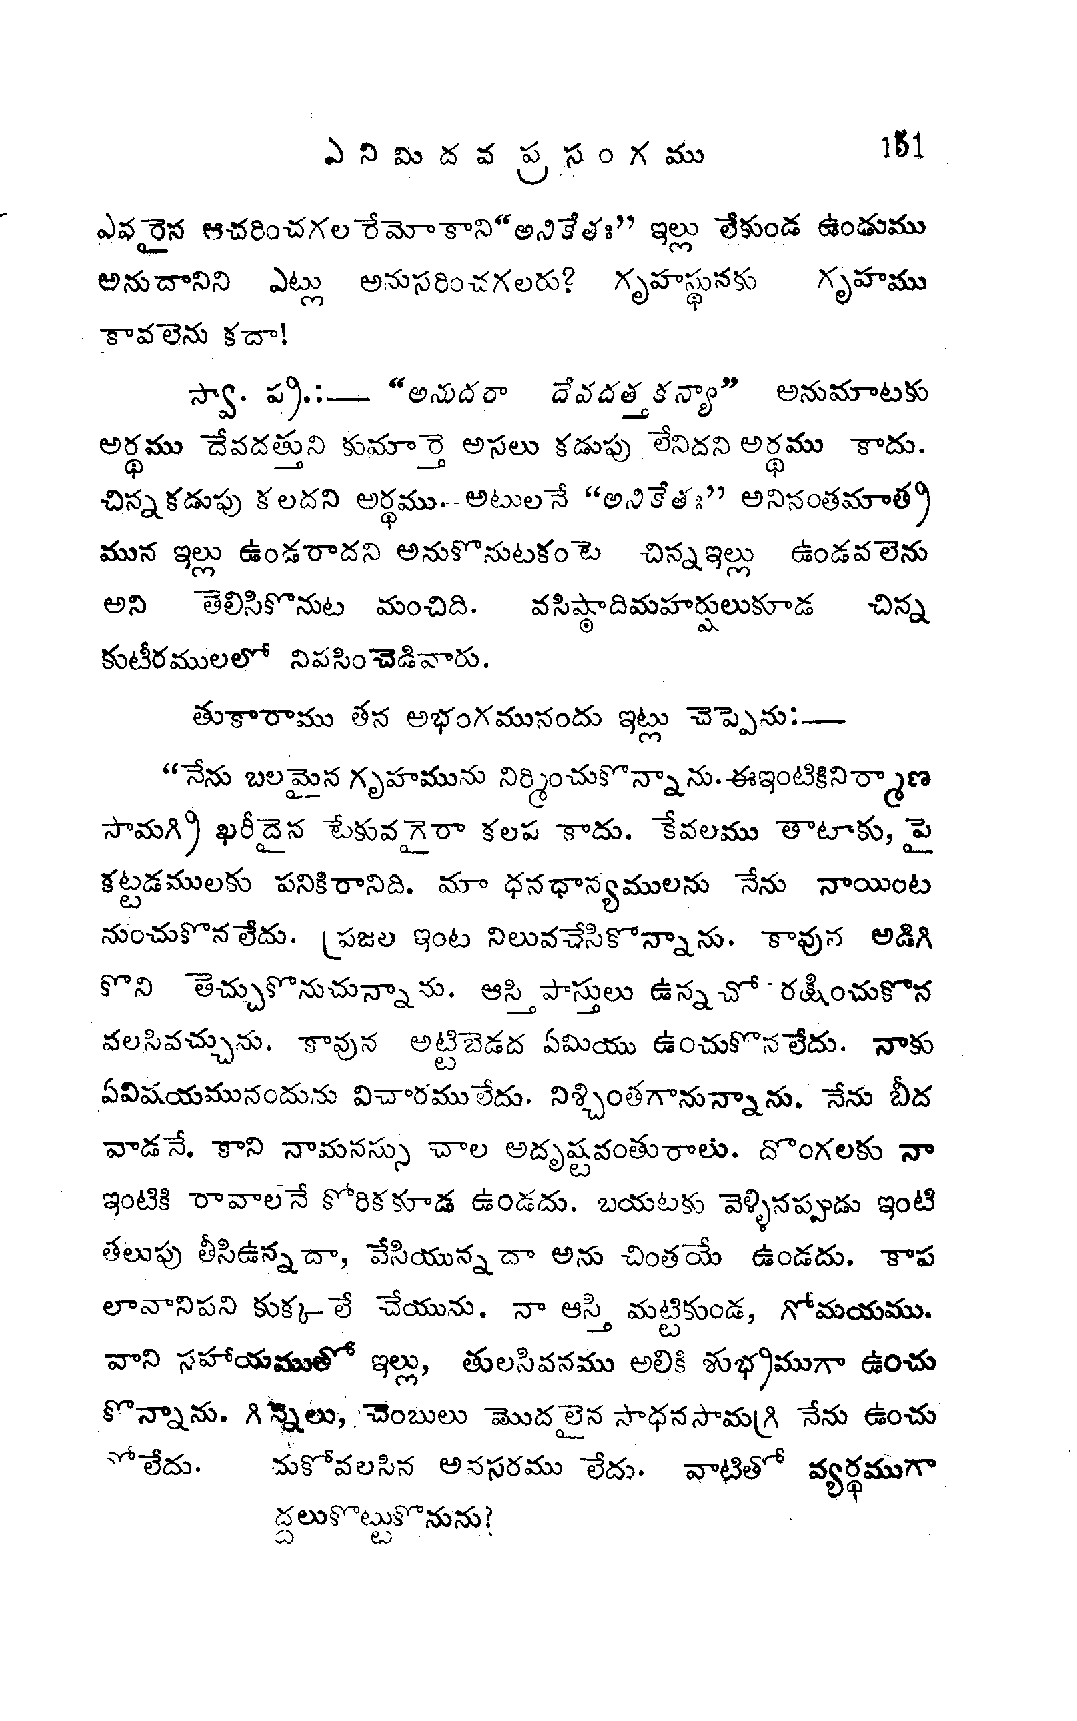 ఎనిమిదవ ప్రసంగము 151
ఎవరైన ఆచరించగలరేమోకాని“అనికేతః” ఇల్లు లేకుండ ఉండుము
అనుదానిని ఎట్లు అనుసరించగలరు? గృహస్థునకు గృహము
కావలెను కదా!
స్వా. ప్రి.:— “అనుదరా దేవదత్తకన్యా” అనుమాటకు
అర్థము దేవదత్తుని కుమార్తె అసలు కడుపు లేనిదని అర్థము కాదు.
చిన్నకడుపు కలదని అర్థము.- అటులనే “అనికేతః” అనినంతమాత్ర
మున ఇల్లు ఉండరాదని అనుకొనుటకంటె చిన్నఇల్లు ఉండవలెను
అని తెలిసికొనుట మంచిది. వసిష్ఠాదిమహర్షులుకూడ చిన్న
కుటీరములలో నివసించెడివారు.
తుకారాము తన అభంగమునందు ఇట్లు చెప్పెను:—
“నేను బలమైన గృహమును నిర్మించుకొన్నాను.ఈఇంటికినిర్మాణ
సామగ్రి ఖరీదైన టేకువగైరా కలప కాదు. కేవలము తాటాకు, పై
కట్టడములకు పనికిరానిది. మా ధనధాన్యములను నేను నాయింట
నుంచుకొనలేదు. ప్రజల ఇంట నిలువచేసికొన్నాను. కావున అడిగి
కొని తెచ్చుకొనుచున్నాను. ఆస్తి పాస్తులు ఉన్నచో రక్షించుకొన
వలసివచ్చును. కావున అట్టిబెడద ఏమియు ఉంచుకొనలేదు. నాకు
ఏవిషయమునందును విచారములేదు. నిశ్చింతగానున్నాను. నేను బీద
వాడనే. కాని నామనస్సు చాల అదృష్టవంతురాలు. దొంగలకు నా
ఇంటికి రావాలనే కోరికకూడ ఉండదు. బయటకు వెళ్ళినప్పుడు ఇంటి
తలుపు తీసిఉన్నదా, వేసియున్నదా అను చింతయే ఉండదు. కాప
లానానిపని కుక్కలే చేయును. నా ఆస్తి మట్టికుండ, గోమయము.
వాని సహాయముతో ఇల్లు, తులసివనము అలికి శుభ్రముగా ఉంచు
కొన్నాను. గిన్నెలు, చెంబులు మొదలైన సాధనసామగ్రి నేను ఉంచు
లేదు. చుకోవలసిన అవసరము లేదు. వాటితో వ్యర్థముగా
ద్దలుకొట్టుకొనును?